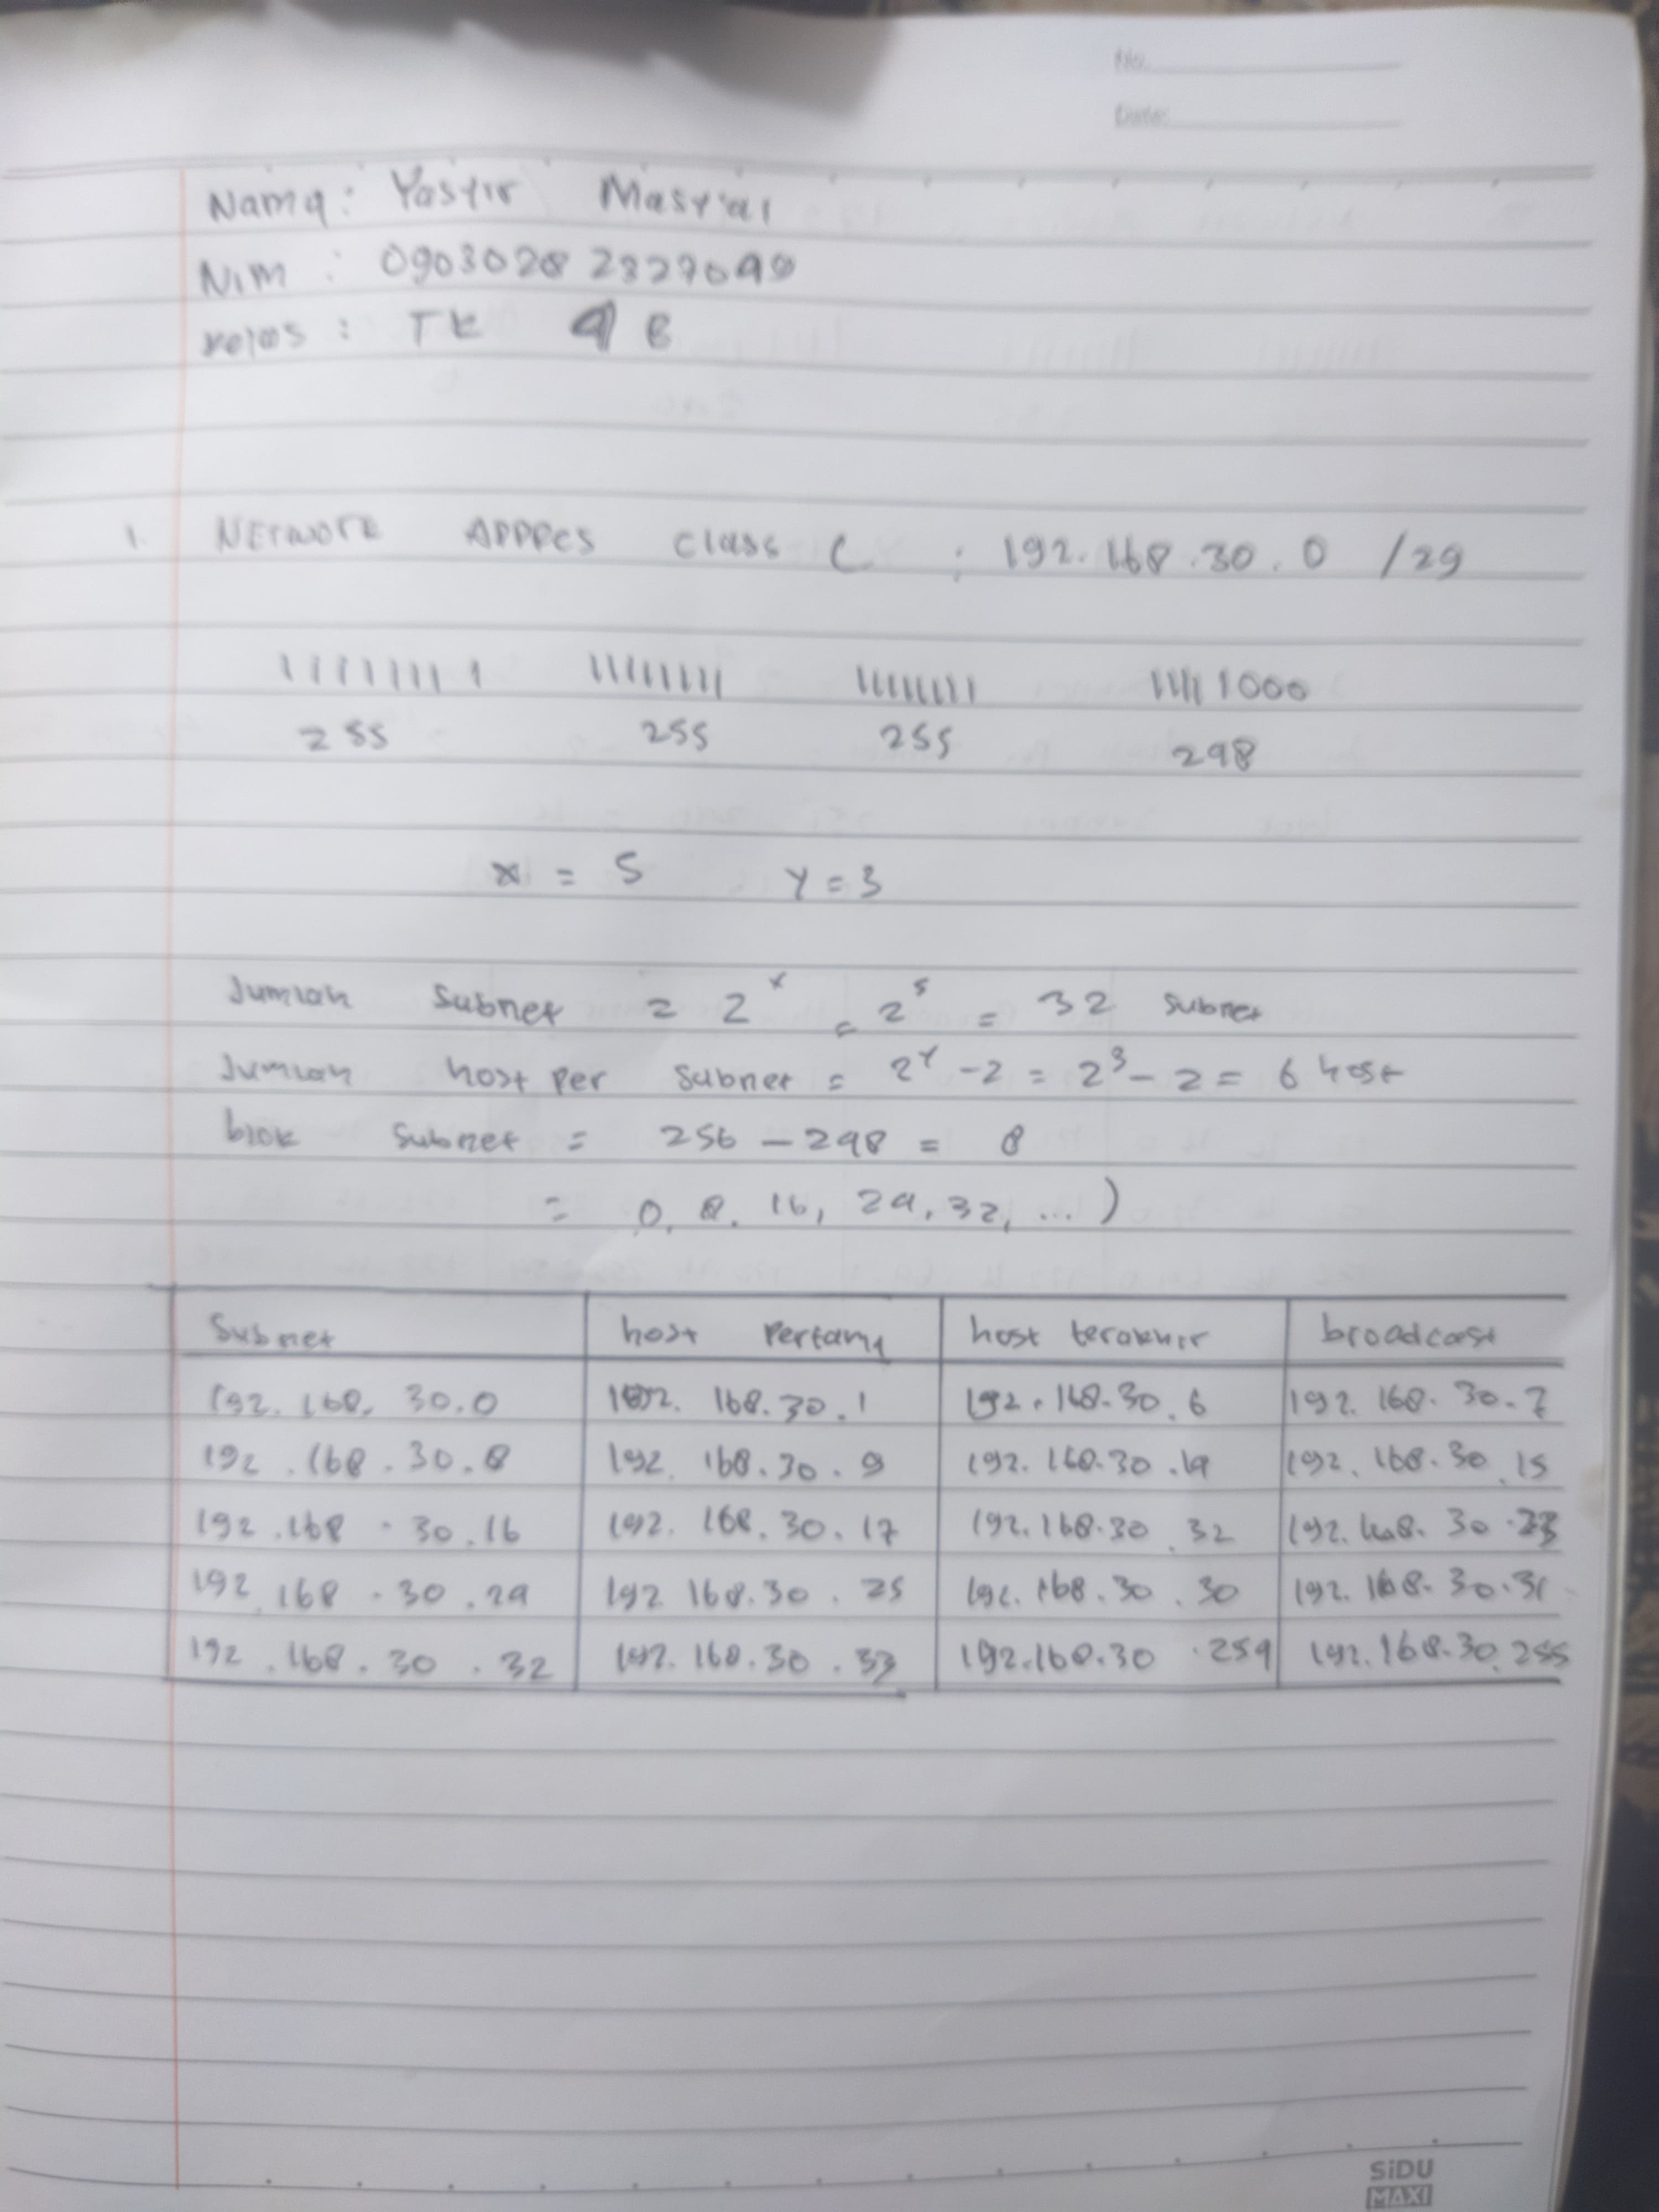 No.
Date:
Nama : Yasyir Masy'al
Nim : 0903028 2327049
kelas : TK 4 B
1. NETWORK ADDRES class C : 192.168.30.0 /29
11111111 11111111 11111111 11111000
255 255 255 248
x = 5 Y = 3
Jumlah Subnet = 2^x = 2^5 = 32 subnet
Jumlah host per subnet = 2^Y - 2 = 2^3 - 2 = 6 host
blok subnet = 256 - 248 = 8
= 0, 8, 16, 24, 32, ... )
Subnet host Pertama host terakhir broadcast
192.168.30.0 192.168.30.1 192.168.30.6 192.168.30.7
192.168.30.8 192.168.30.9 192.168.30.14 192.168.30.15
192.168.30.16 192.168.30.17 192.168.30.32 192.168.30.23
192.168.30.24 192.168.30.25 192.168.30.30 192.168.30.31
192.168.30.32 192.168.30.33 192.168.30.254 192.168.30.255
SiDU
MAXI